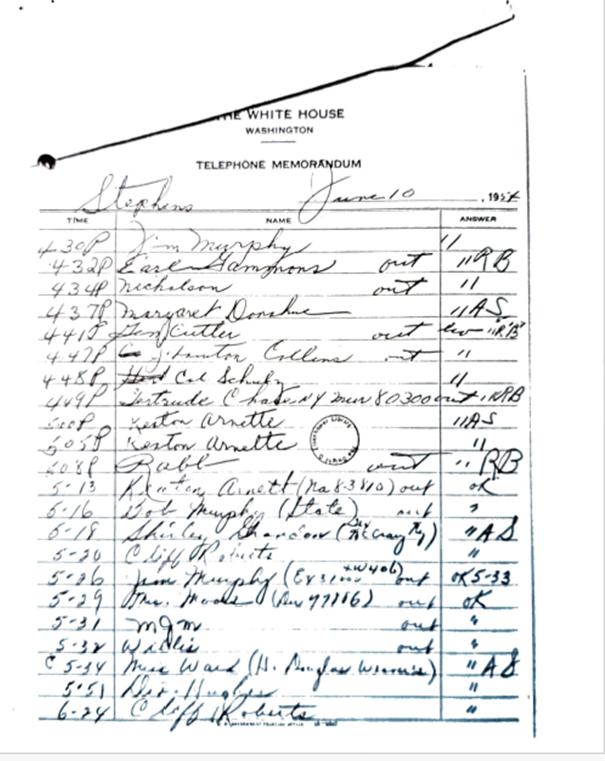 THE WHITE HOUSE
WASHINGTON
TELEPHONE MEMORANDUM
Stephens June 10, 1954
TIME NAME ANSWER
4 30P Jim Murphy "
4 32P Earl Gammons out " RB
4 34P Nicholson out "
4 37P Margaret Donahue " AS
4 41P Gen Cutler out "RB"
4 47P Collins out "
4 48P Col Schulz "
4 49P Gertrude Chase NY Mur 80300 out " RB
500P Keston Arnette " AS
505P Keston Arnette "
508P Rabb out " RB
5-13 Arnett (Na 8-3810) out OK
5-16 Bob Murphy (State) out "
5-18 Shirley " AS
5-20 Cliff Roberts "
5-26 Jim Murphy out OK 5-33
5-29 out OK
5-31 MGM out "
5-32 Willis out "
C 5-34 Miss Ward (H. Douglas " AS
5-51 Hughes "
6-24 Cliff Roberts "